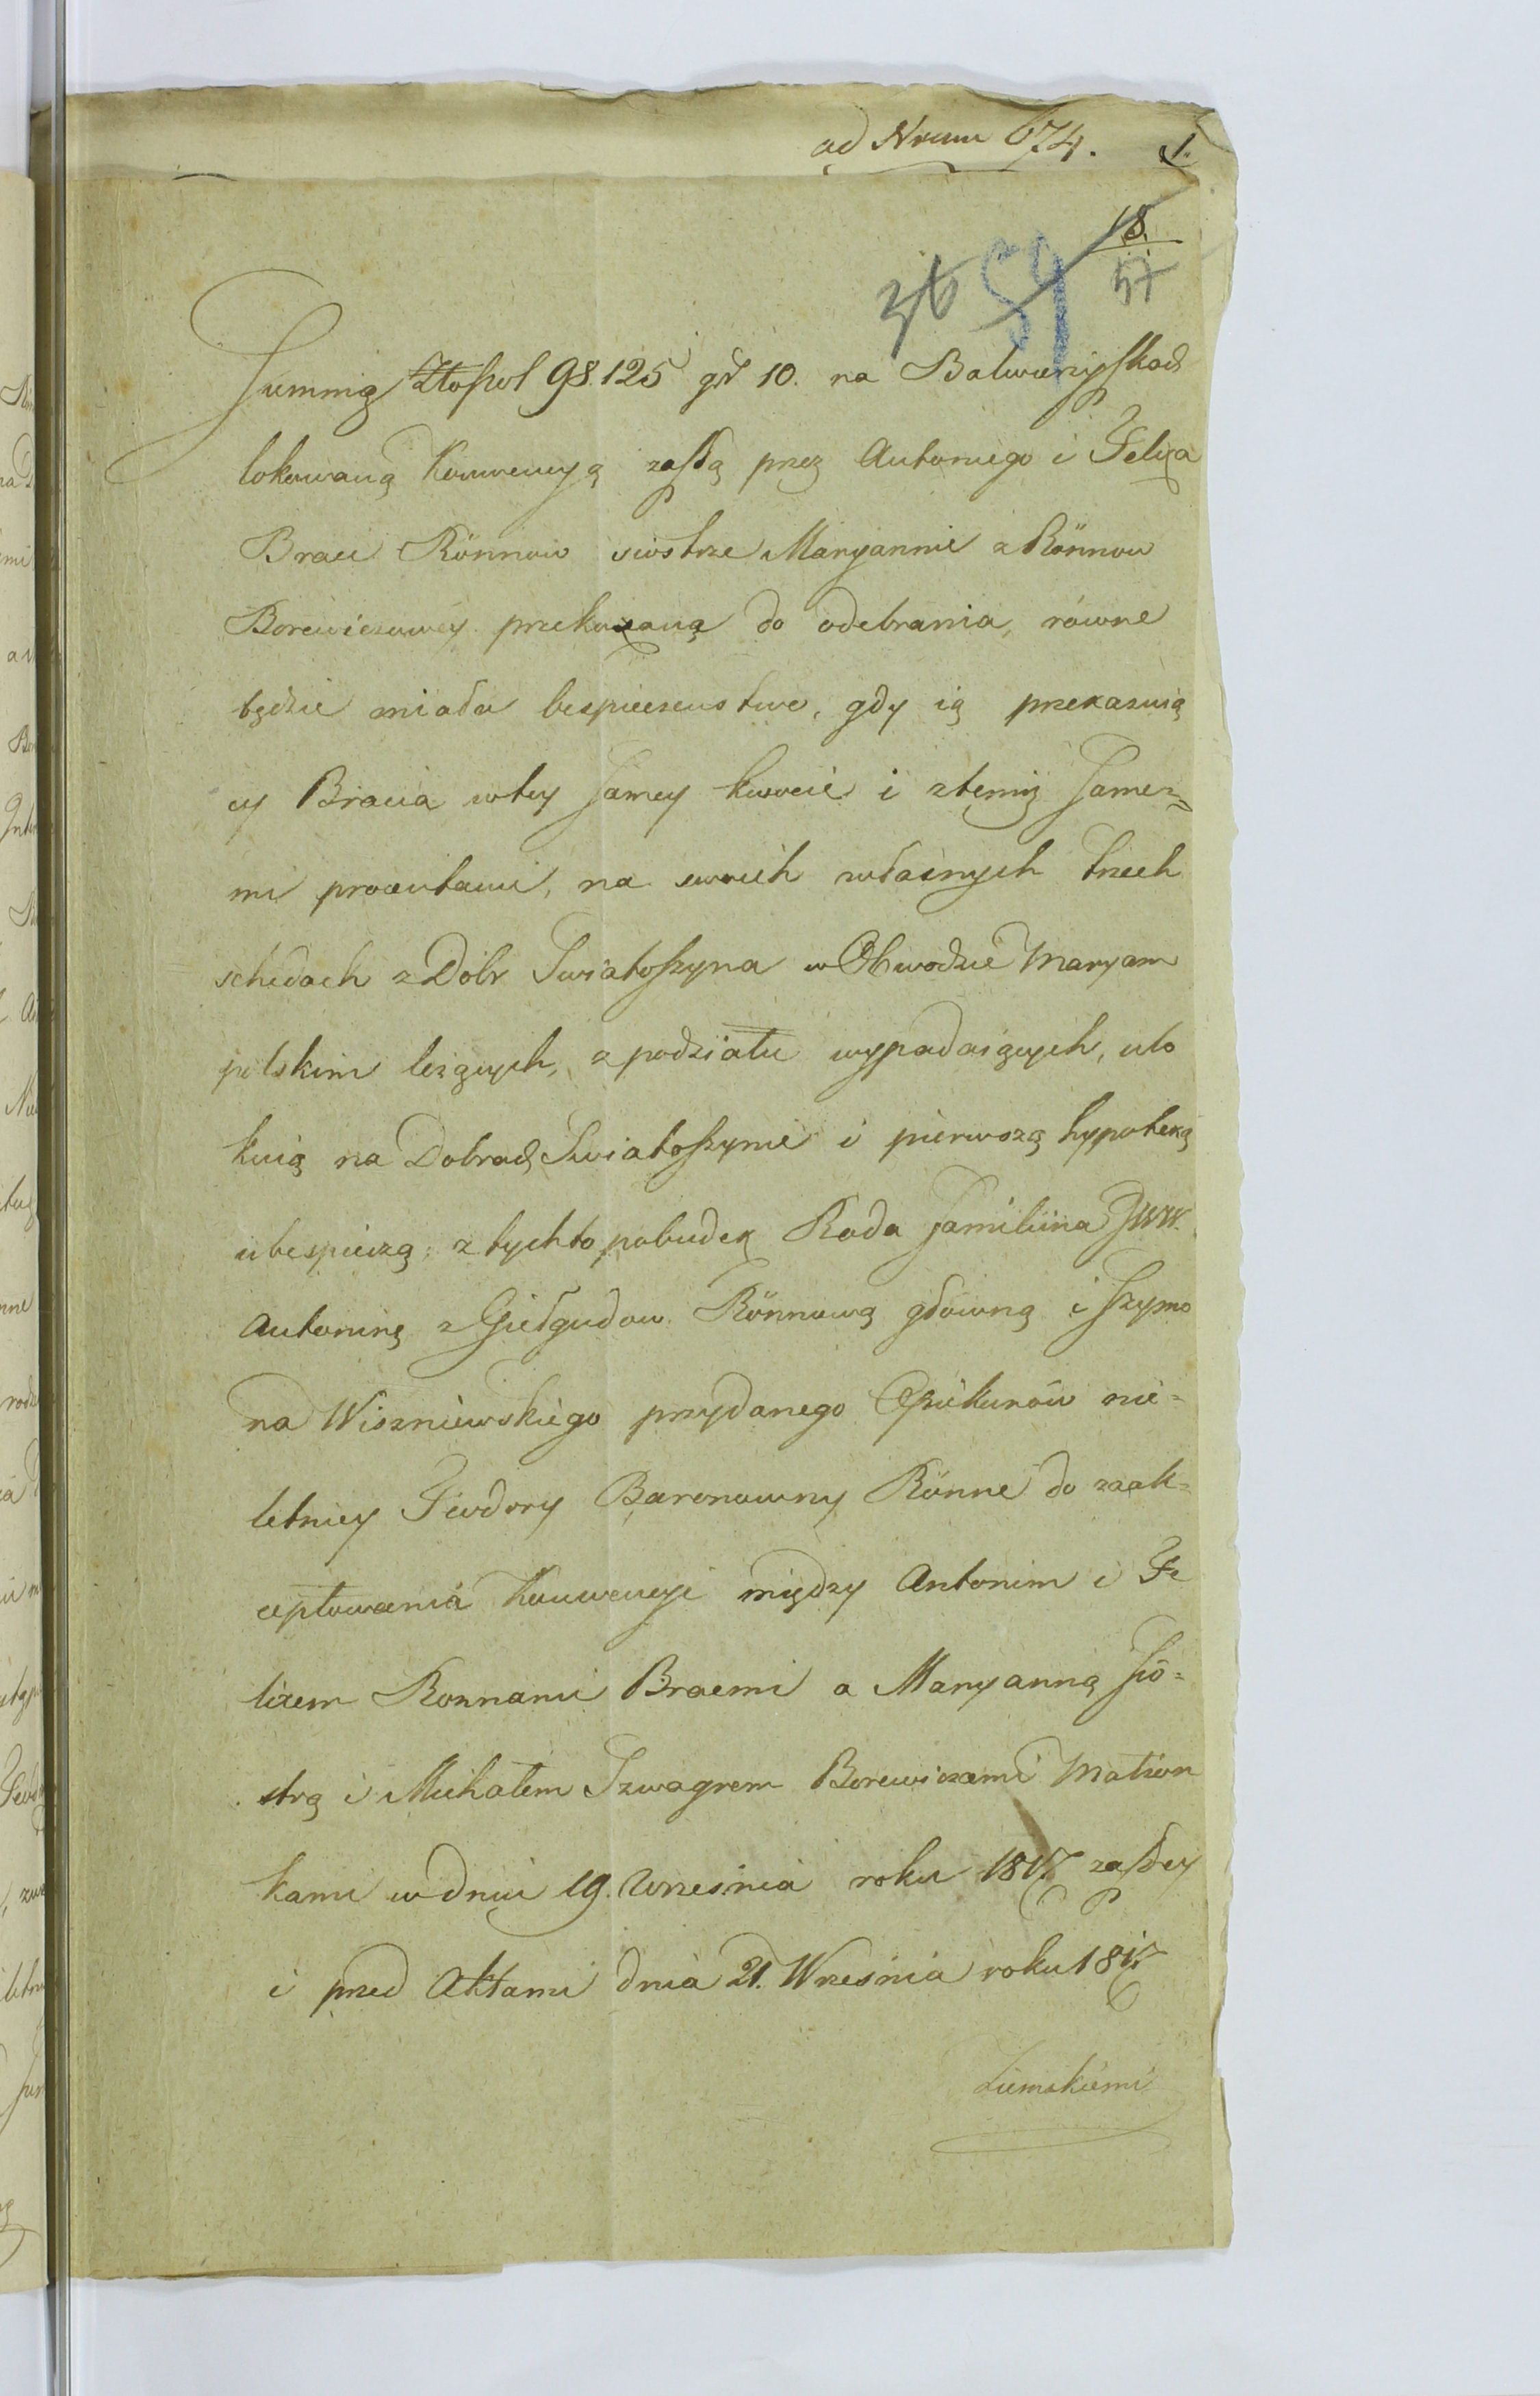 ad Nrum 674. 1.
18.
36 59 57
Summę Złotpol 98.125 gr 10. na Balwierzyszkach
lokowaną Konwencyą zaszłą przez Antoniego i Felixa
Braci Rönnów siostrze Maryannie z Rönnow
Borewiczowey przekazaną do odebrania, równe
będzie miała bespieczenstwo, gdy ią przekazuią
cy Bracia w tey samey kwocie i z temiż samez=
mi procentami, na swoich własnych trzech
schedach z Dóbr Swiatoszyna w Obwodzie Maryam
polskim leżących, z podziału wypadaiących, ulo
kuią na Dobrach Swiatoszynie i pierwszą hypoteką
ubespieczą; z tychto pobudek Rada familiina JWW.
Antoninę z Giełgudow Rönnową główną i Szymo
na Wiszniewskiego przydanego Opiekunów nie=
letniey Teodory Baronowny Rönne do zaak=
ceptowania Konwencyi między Antonim i Fe
lixem Ronnami Braćmi a Maryanną sio=
strą i Michałem Szwagrem Borewiczami Małżon
kami w dniu 19. Września roku 1817 zaszłey
i przed Aktami dnia 21. Września roku 1817
Ziemskiemi